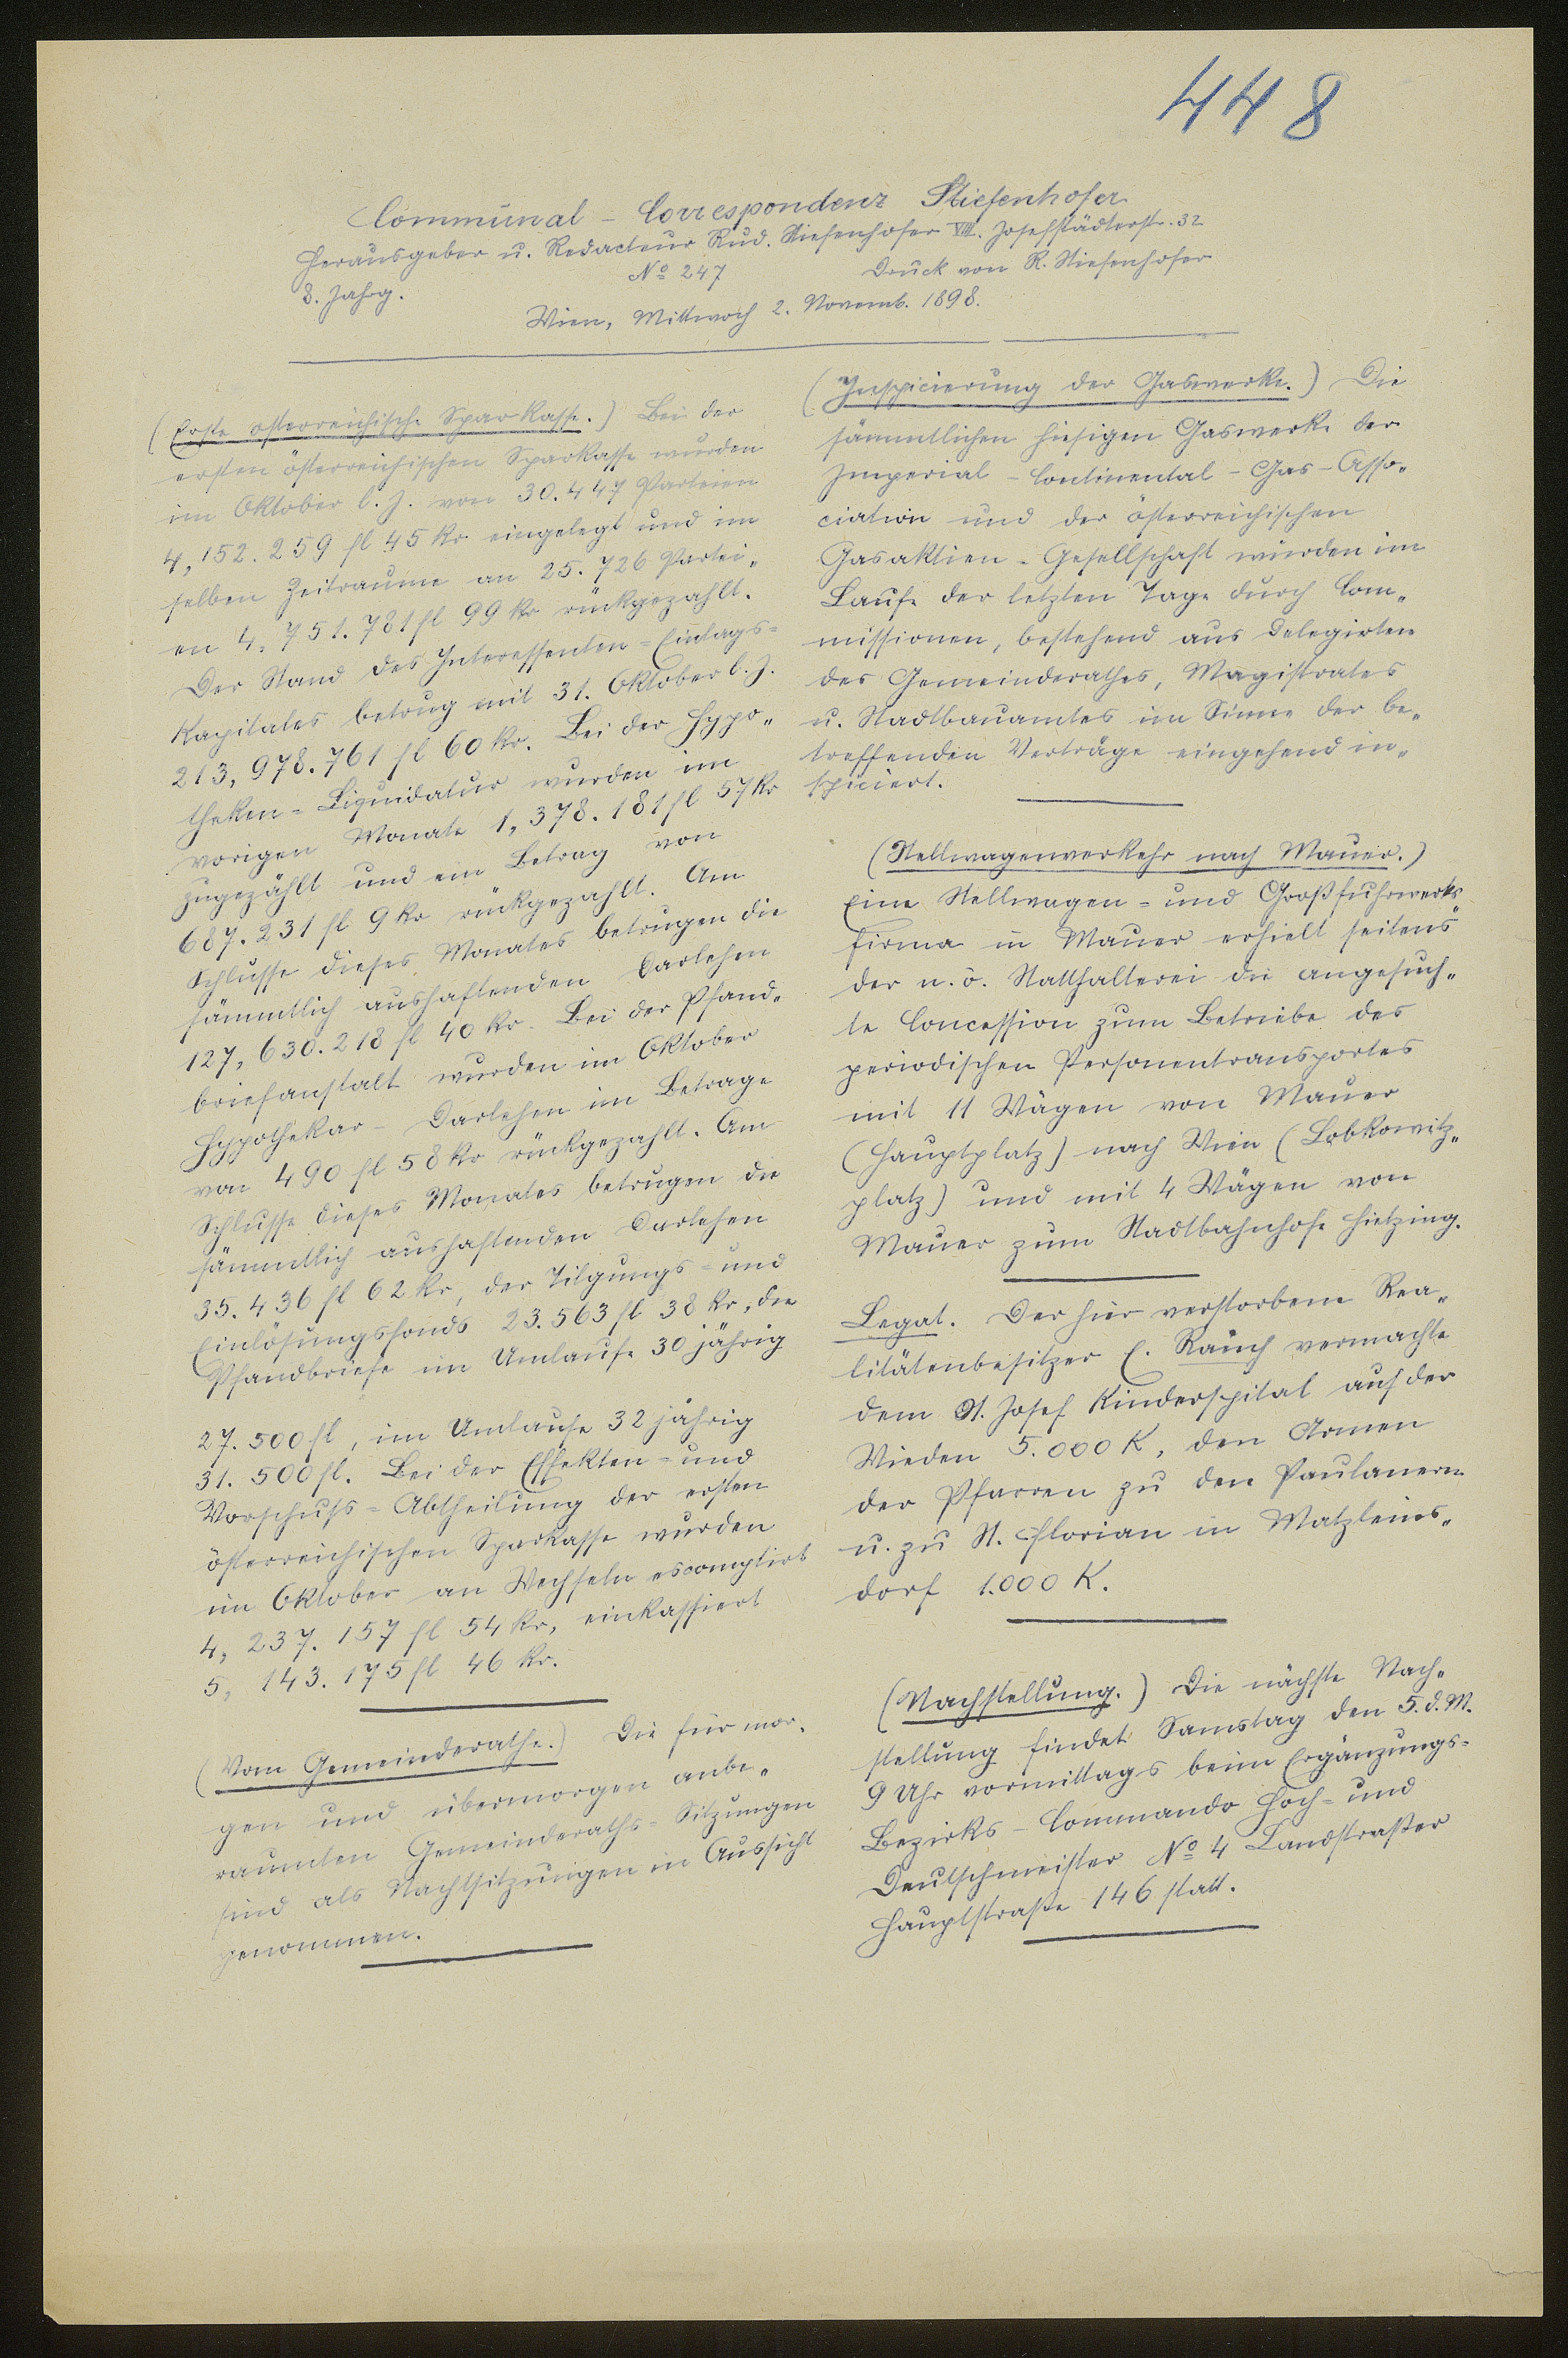 448
Communal - Correspondenz Stiefenhofer
Herausgeber u. Redacteur Rud. Stiefenhofer VIII. Josefstädterstr. 32
8. Jahrg. No 247 Druck von R. Stiefenhofer
Wien, Mittwoch 2. Novemb. 1898.
(Erste österreichische Sparkasse.) Bei der
ersten österreichischen Sparkasse wurden
im Oktober l. J. von 30.447 Parteien
4,152.259 fl 45 kr eingelegt und im
selben Zeitraume an 25.726 Partei„
en 4,751.781 fl 99 kr rückgezahlt.
Der Stand des Interessenten=Einlags=
Kapitales betrug mit 31. Oktober l. J.
213,978.761 fl 60 kr. Bei der Hypo„
theken=Liquidatur wurden im
vorigen Monate 1,378.181 fl 57 kr
zugezählt und ein Betrag von
687.231 fl 9 kr rückgezahlt. Am
Schlusse dieses Monates betrugen die
sämmtlich aushaftenden Darlehen
127,630.218 fl 40 kr. Bei der Pfand„
briefanstalt wurden im Oktober
Hypothekar- Darlehen im Betrage
von 490 fl 58 kr rückgezahlt. Am
Schlusse dieses Monates betrugen die
sämmtlich aushaftenden Darlehen
35.436 fl 62 kr, der Tilgungs=und
Einlösungsfonds 23.563 fl 38 kr, die
Pfandbriefe im Umlaufe 30 jährig
27.500 fl, im Umlaufe 32 jährig
31.500 fl. Bei der Effekten=und
Vorschuß=Abtheilung der ersten
österreichischen Sparkasse wurden
im Oktober an Wechseln escomptirt
4,237.157 fl 54 kr, einkassiert
5,143.175 fl 46 kr.
(Vom Gemeinderathe.) Die für mor„
gen und übermorgen anbe„
raumten Gemeinderaths=Sitzungen
sind als Nachtsitzungen in Aussicht
genommen.
(Inspicierung der Gaswerke.) Die
sämmtlichen hiesigen Gaswerke der
Imperial-Continental-Gas-Asso„
ciation und der österreichischen
Gasaktien-Gesellschaft wurden im
Laufe der letzten Tage durch Com„
missionen, bestehend aus Delegirten
des Gemeinderathes, Magistrates
u. Stadtbauamtes im Sinne der be„
treffenden Verträge eingehend in„
spiciert.
(Stellwagenverkehr nach Mauer.)
Eine Stellwagen=und Großfuhrwerks„
firma in Mauer erhielt seitens
der n. ö. Statthalterei die angesuch„
te Concession zum Betriebe des
periodischen Personentransportes
mit 11 Wägen von Mauer
(Hauptplatz) nach Wien (Lobkowitz„
platz) und mit 4 Wägen von
Mauer zum Stadtbahnhofe Hietzing.
Legat. Der hier verstorbene Rea„
litätenbesitzer E. Rauch vermachte
dem St. Josef Kinderspital auf der
Wieden 5.000 K, den Armen
der Pfarren zu den Paulanern
u. zu St. Florian in Matzleins„
dorf 1.000 K.
(Nachstellung.) Die nächste Nach„
stellung findet Samstag den 5. d. M.
9 Uhr vormittags beim Ergänzungs=
Bezirks-Commando Hoch=und
Deutschmeister No 4 Landstraßer
Hauptstraße 146 statt.